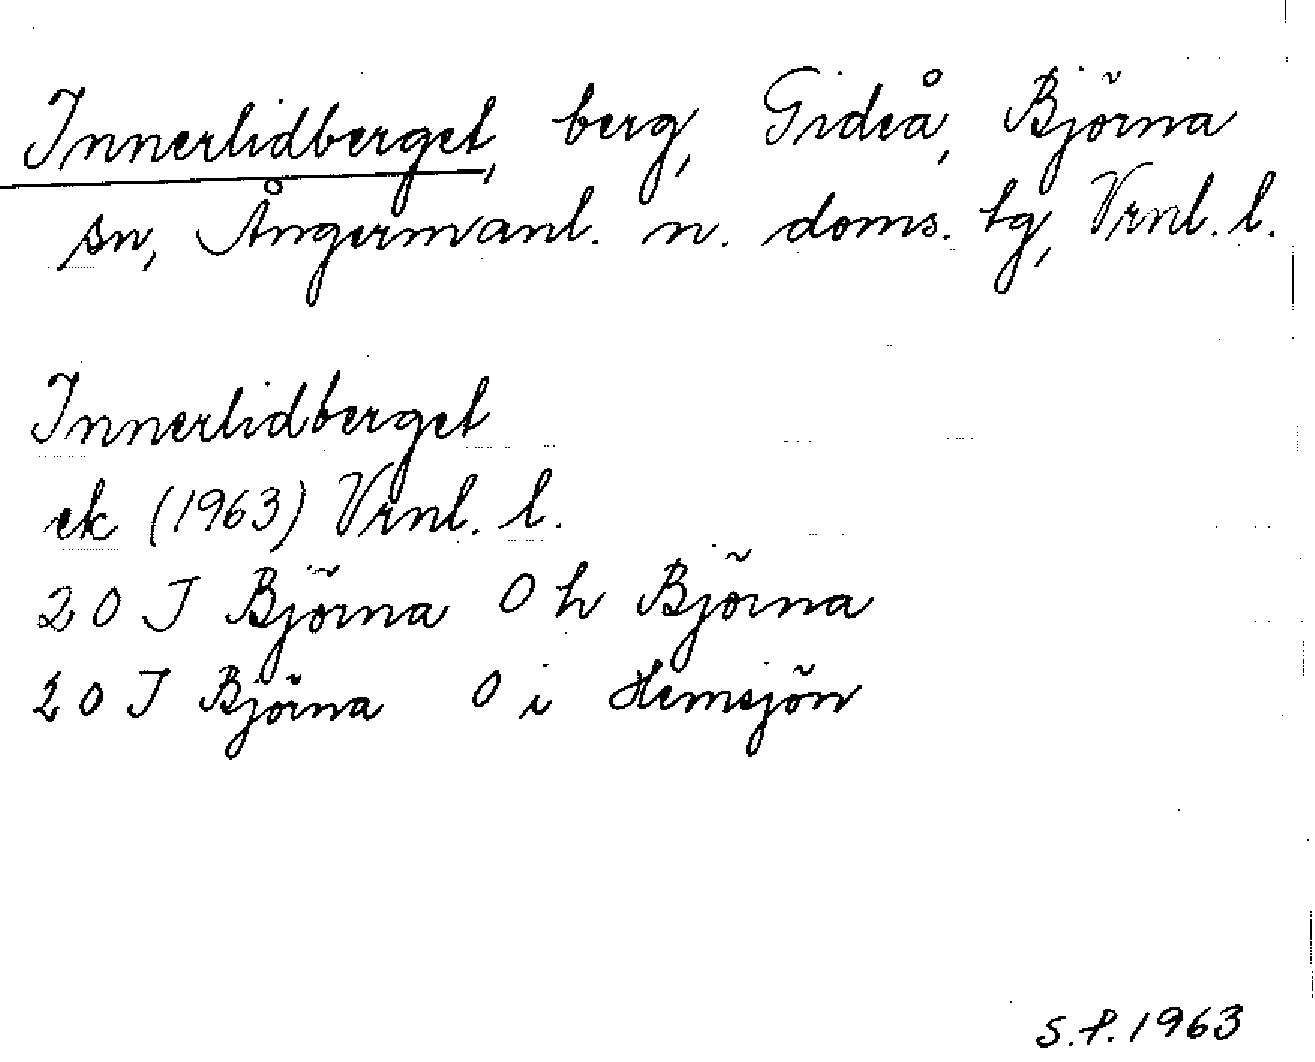 Innerlidberget, berg, Gideå, Björna
sn, Ångermanl. n. doms. tg, Vrnl. l.
Innerlidberget
ek (1963) Vrnl. l.
20 J Björna 0 h Björna
20 J Björna 0 i Hemsjön
S.P. 1963